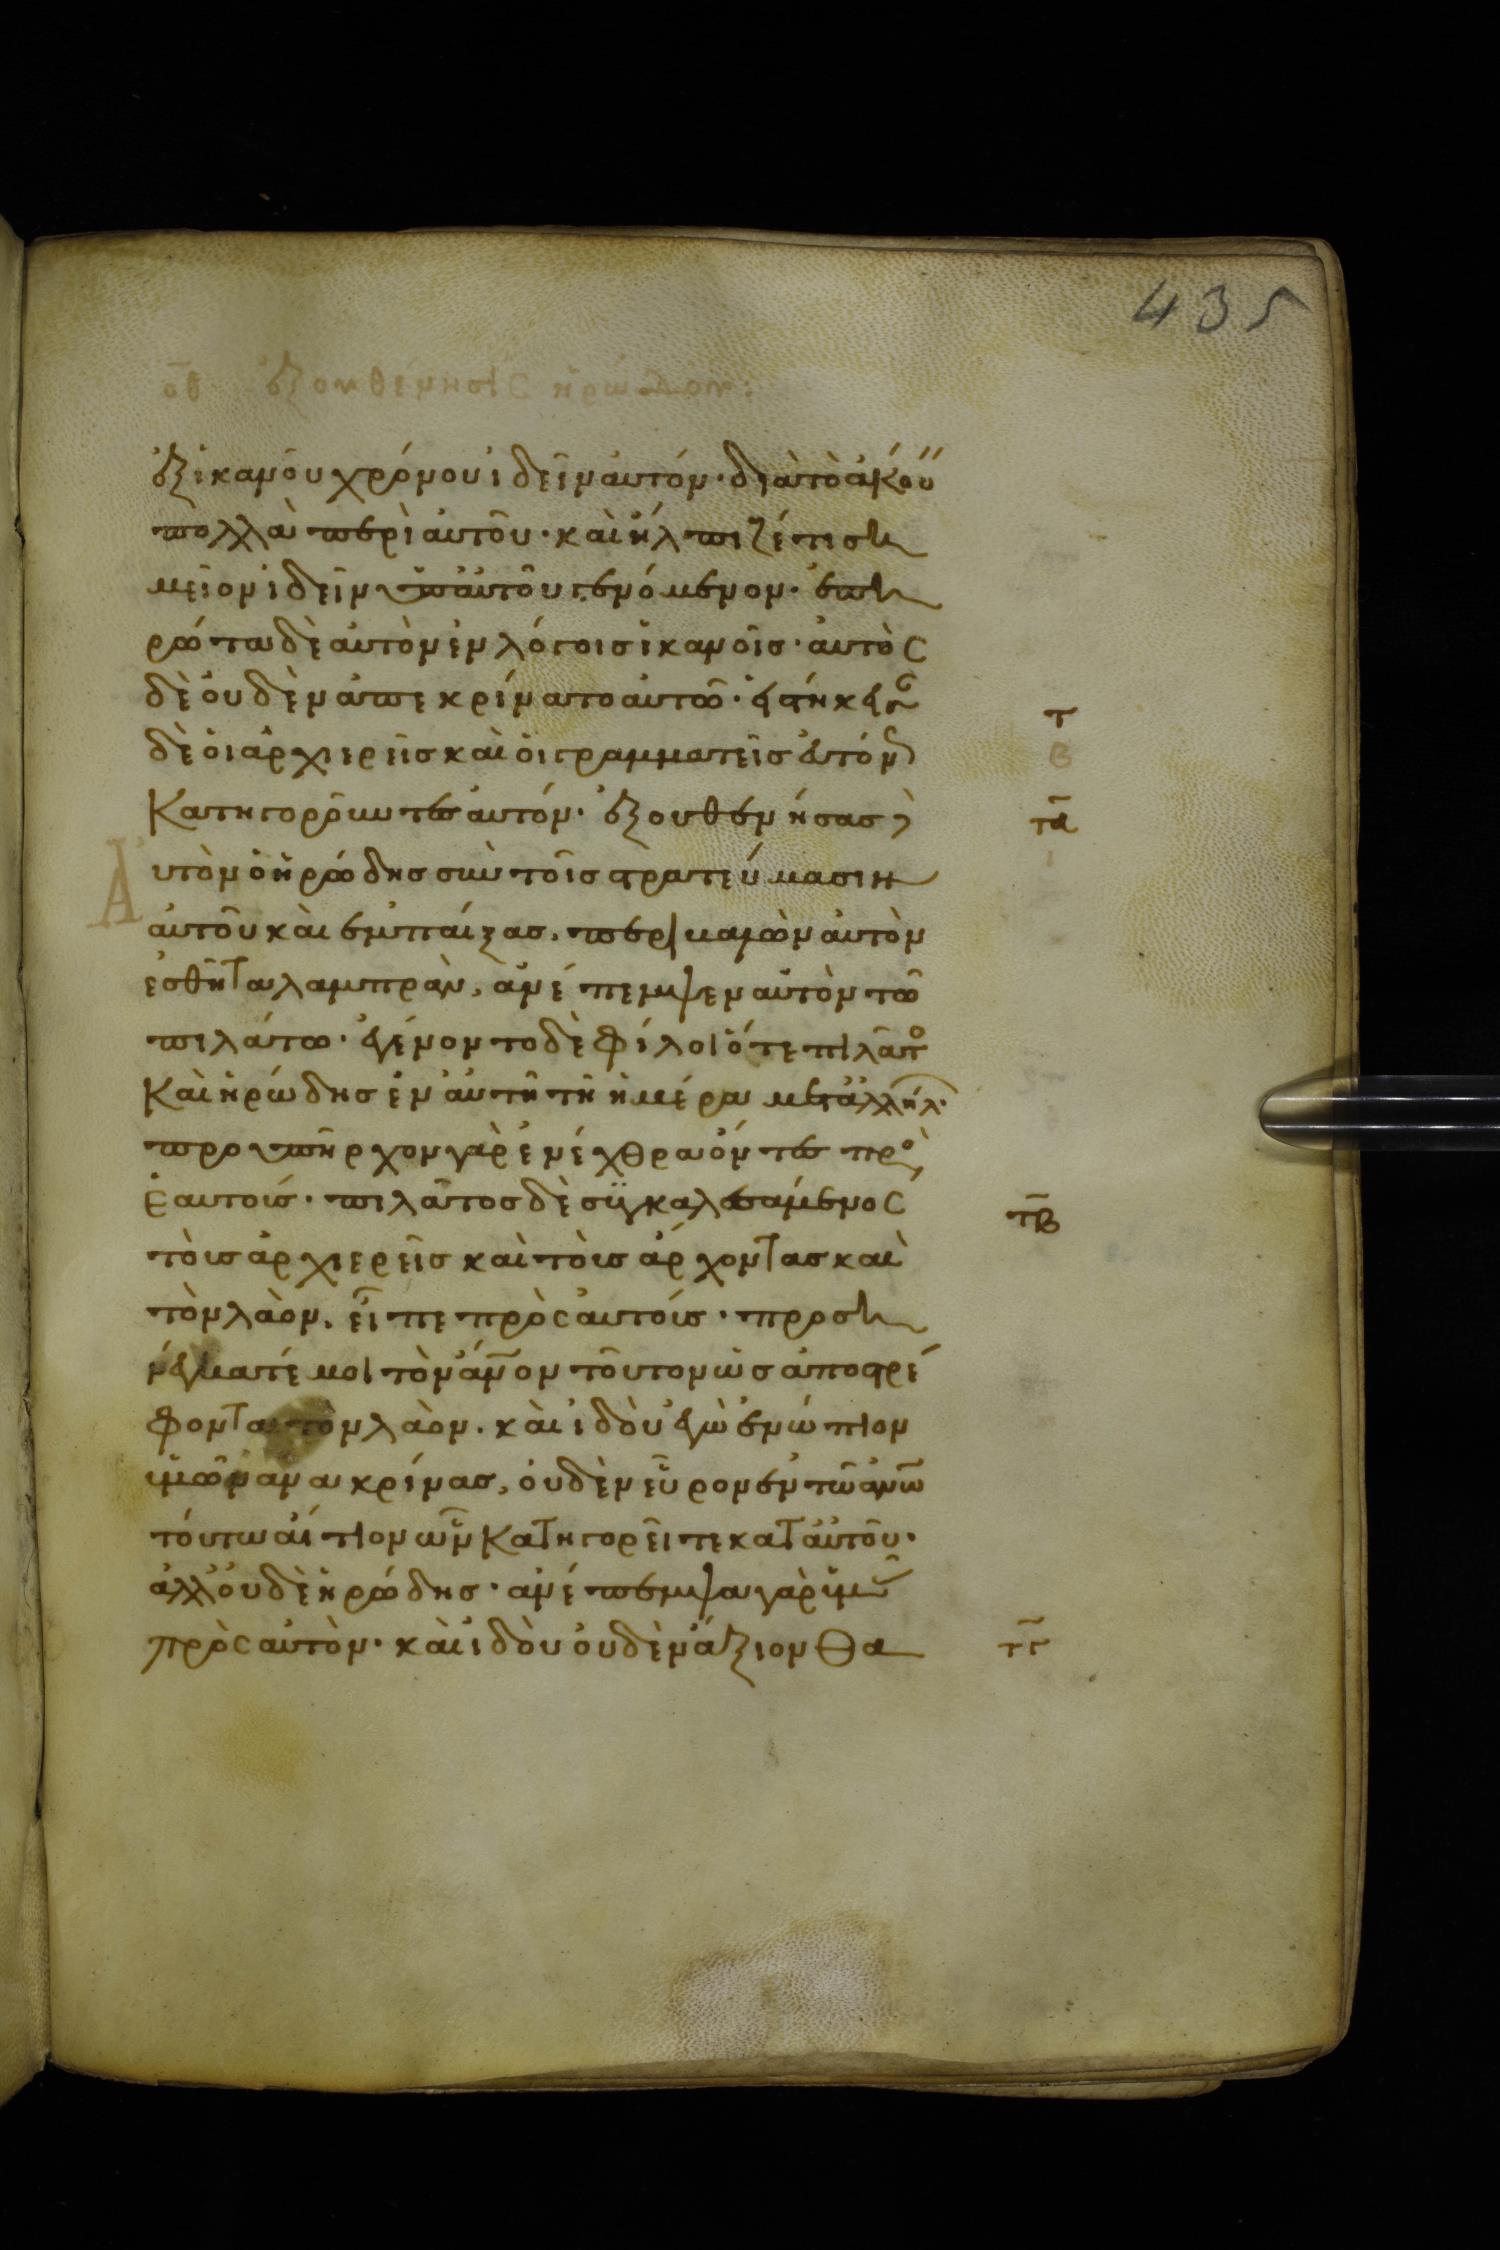 435
οθ ἐξουθένησις ἡρώδου:
ἐξ ἱκανοῦ χρόνου ἰδεῖν αὐτόν· διὰ τὸ ἀκού
πολλὰ περὶ αὐτοῦ· καὶ ἤλπιζέ τι ση
μεῖον ἰδεῖν ὑπ' αὐτοῦ γενόμενον· ἐπη
ρώτα δὲ αὐτὸν ἐν λόγοις ἱκανοῖς· αὐτὸς
δὲ οὐδὲν ἀπεκρίνατο αὐτῶ· εἱστήκεισ
δὲ οἱ ἀρχιερεῖς καὶ οἱ γραμματεῖς εὐτόν
κατηγοροῦντες αὐτόν· ἐξουθενήσας δὲ
αὐτὸν ὁ ἡρώδης σὺν τοῖς στρατεύμασιν
αὐτοῦ καὶ ἐμπαίξας, περιβαλὼν αὐτὸν
ἐσθῆτα λαμπρὰν, ἀνέπεμψεν αὐτὸν τῶ
πιλάτω· ἐγένοντο δὲ φίλοι ὅ τε πιλᾶτο
καὶ ἡρώδης ἐν αὐτῆ τῆ ἡμέρα μετ' ἀλλήλ·
προυπῆρχον γὰρ ἐν ἔχθρα ὄντες πρὸ
ἑαυτούς· πιλᾶτος δὲ συγκαλεσάμενος
τοὺς ἀρχιερεῖς καὶ τοὺς ἄρχοντας καὶ
τὸν λαὸν, εἶπε πρὸς αὐτούς· προση
νέγκατέ μοι τὸν ἄνον τοῦτον ὡς ἀποστρέ
φοντα τὸν λαὸν· καὶ ἰδοὺ ἐγὼ ἐνώπιον
ὑμῶν ἀνακρίνας, οὐδὲν εὗρον ἐν τῶ ἀνω
τούτω αἴτιον ὧν κατηγορεῖτε κατ' αὐτοῦ·
ἀλλ' οὐδὲ ἡρώδης· ἀνέπεμψα γὰρ ὑμᾶ
πρὸς αὐτὸν· καὶ ἰδοὺ οὐδὲν ἄξιον θα
τ
β
τα
τβ
τγ